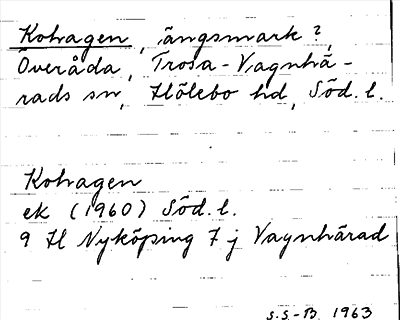 Kohagen, ängsmark?,
Överåda, Trosa-Vagnhä-
rads sn, Hölebo hd, Söd. l.
Kohagen
ek (1960) Söd. l.
9 H Nyköping 7 j Vagnhärad
S.S.-B. 1963